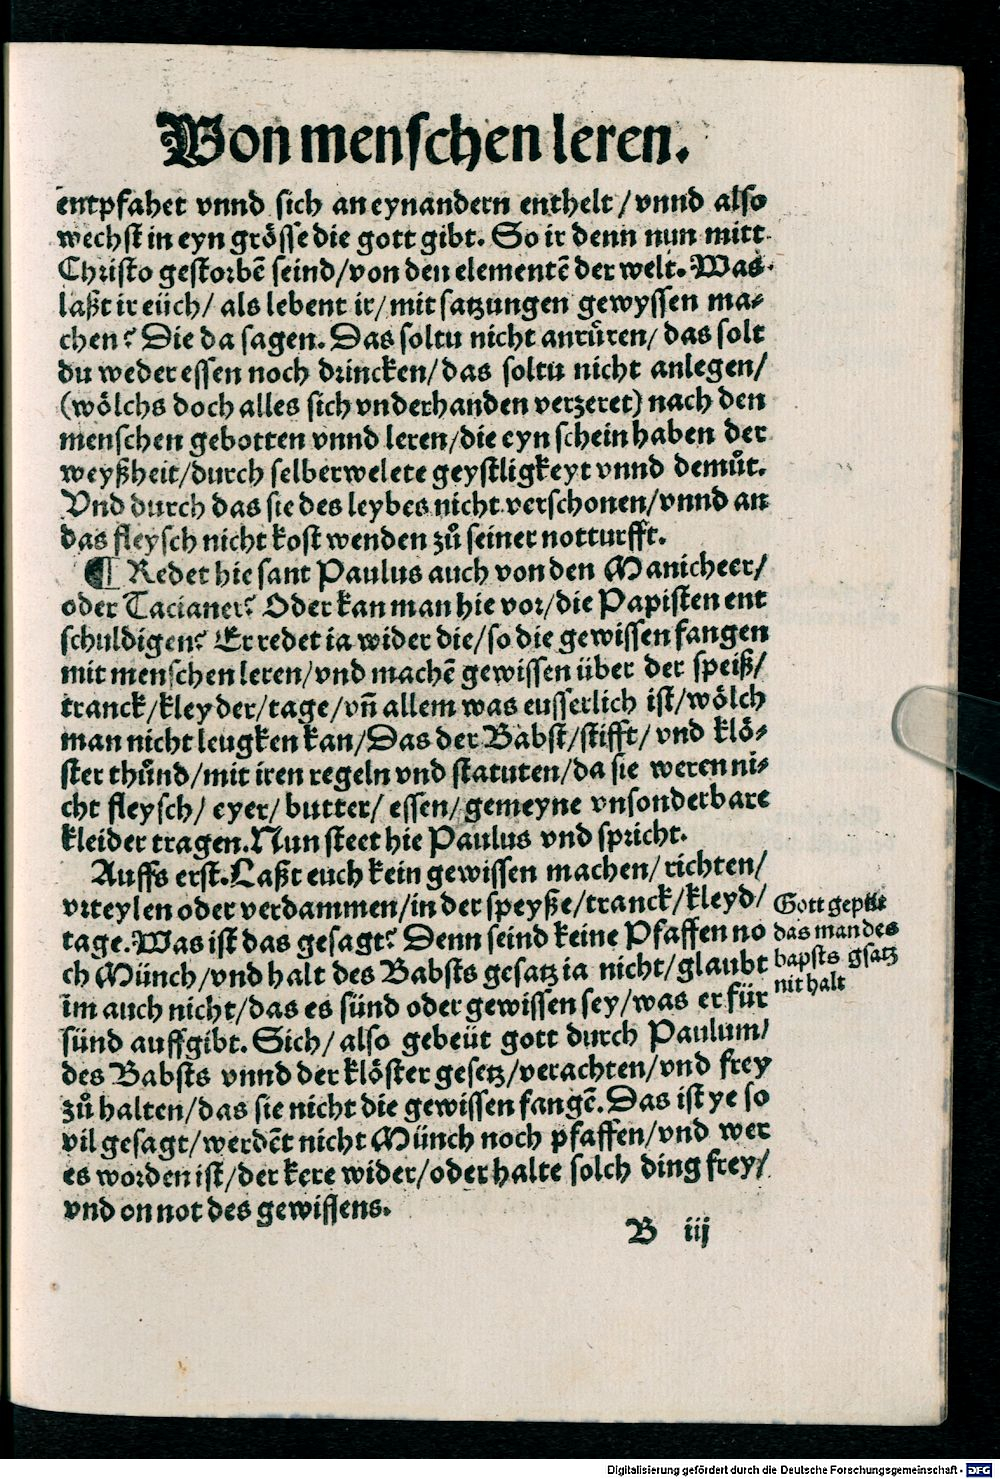 Von menschen leren.
entpfahet vnnd sich an eynandern enthelt/vnnd also
wechst in eyn grösse die gott gibt. So ir denn nun mitt
Christo gestorbē seind/von den elementē der welt. Was
laßt ir eüch/ als lebent ir/mit satzungen gewyssen ma⸗
chen? Die da sagen. Das soltu nicht anruͤren/ das solt
du weder essen noch drincken/das soltu nicht anlegen/
(wölchs doch alles sich vnderhanden verzeret) nach den
menschen gebotten vnnd leren/die eyn schein haben der
weyßheit/durch selberwelete geystligkeyt vnnd demuͦt.
Vnd durch das sie des leybes nicht verschonen/vnnd an
das fleysch nicht kost wenden zuͦ seiner notturfft.
¶ Redet hie sant Paulus auch von den Manicheer/
oder Tacianer? Oder kan man hie vor/die Papisten ent
schuldigen? Er redet ia wider die/so die gewissen fangen
mit menschen leren/vnd machē gewissen über der speiß/
tranck/kleyder/tage/vn̄ allem was eusserlich ist/wölch
man nicht leugken kan/Das der Babst/stifft/ vnd klö⸗
ster thuͦnd/mit iren regeln vnd statuten/da sie weren ni⸗
cht fleysch/ eyer/ butter/ essen/gemeyne vnsonderbare
kleider tragen. Nun steet hie Paulus vnd spricht.
Auffs erst. Laßt euch kein gewissen machen/ richten/
vrteylen oder verdammen/in der speyße/tranck/kleyd/
tage. Was ist das gesagt? Denn seind keine Pfaffen no
ch Münch/vnd halt des Babsts gesatz ia nicht/glaubt
im auch nicht/das es sünd oder gewissen sey/was er für
sünd auffgibt. Sich/ also gebeüt gott durch Paulum/
des Babsts vnnd der klöster gesetz/verachten/vnd frey
zuͦ halten/das sie nicht die gewissen fangē. Das ist ye so
vil gesagt/werdēt nicht Münch noch pfaffen/vnd wer
es worden ist/der kere wider/oder halte solch ding frey/
vnd on not des gewissens.
Gott gepüt
das man des
bapsts gsatz
nit halt
B iij
Digitalisierung gefördert durch die Deutsche Forschungsgemeinschaft - DFG